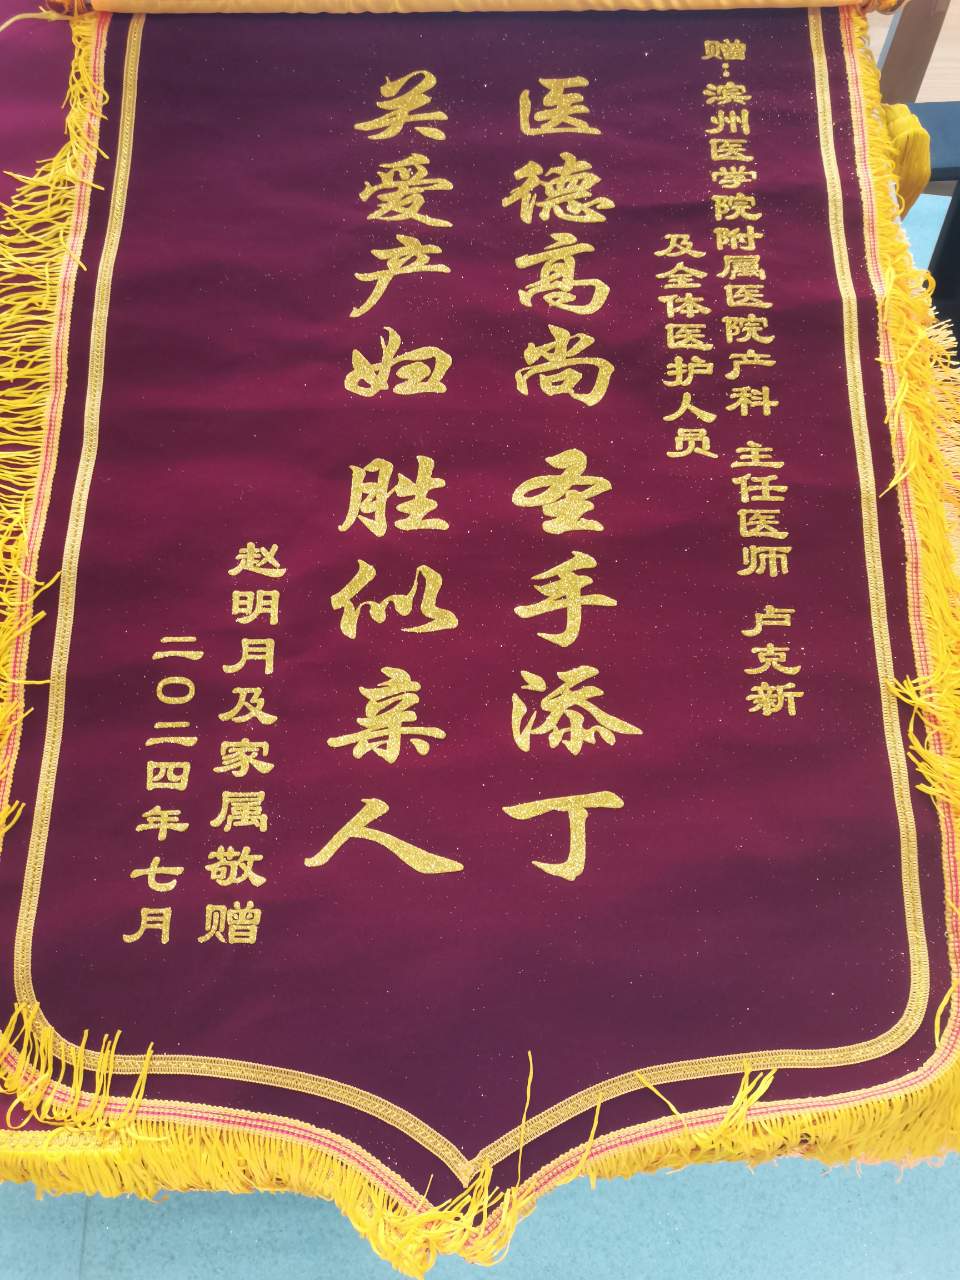 赠：滨州医学院附属医院产科 主任医师 卢克新
及全体医护人员
医德高尚 圣手添丁
关爱产妇 胜似亲人
赵明月及家属敬赠
二〇二四年七月